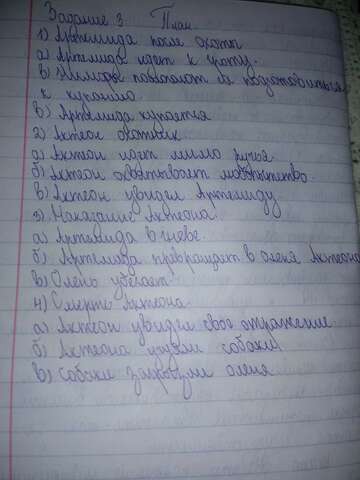 Задание 3. План.
1) Артемида после охоты
а) Артемида идет к гроту.
б) Нимфы помогают ей подготовиться
к купанию.
в) Артемида купается
2) Актеон охотник
а) Актеон идет мимо ручья
б) Актеон охватывает любопытство.
в) Актеон увидел Артемиду.
3) Наказание Актеона.
а) Артемида в гневе.
б) Артемида превращает в оленя Актеона
в) Олень убегает.
4) Смерть Актеона
а) Актеон увидел свое отражение
б) Актеона учуяли собаки
в) Собаки загрызли оленя